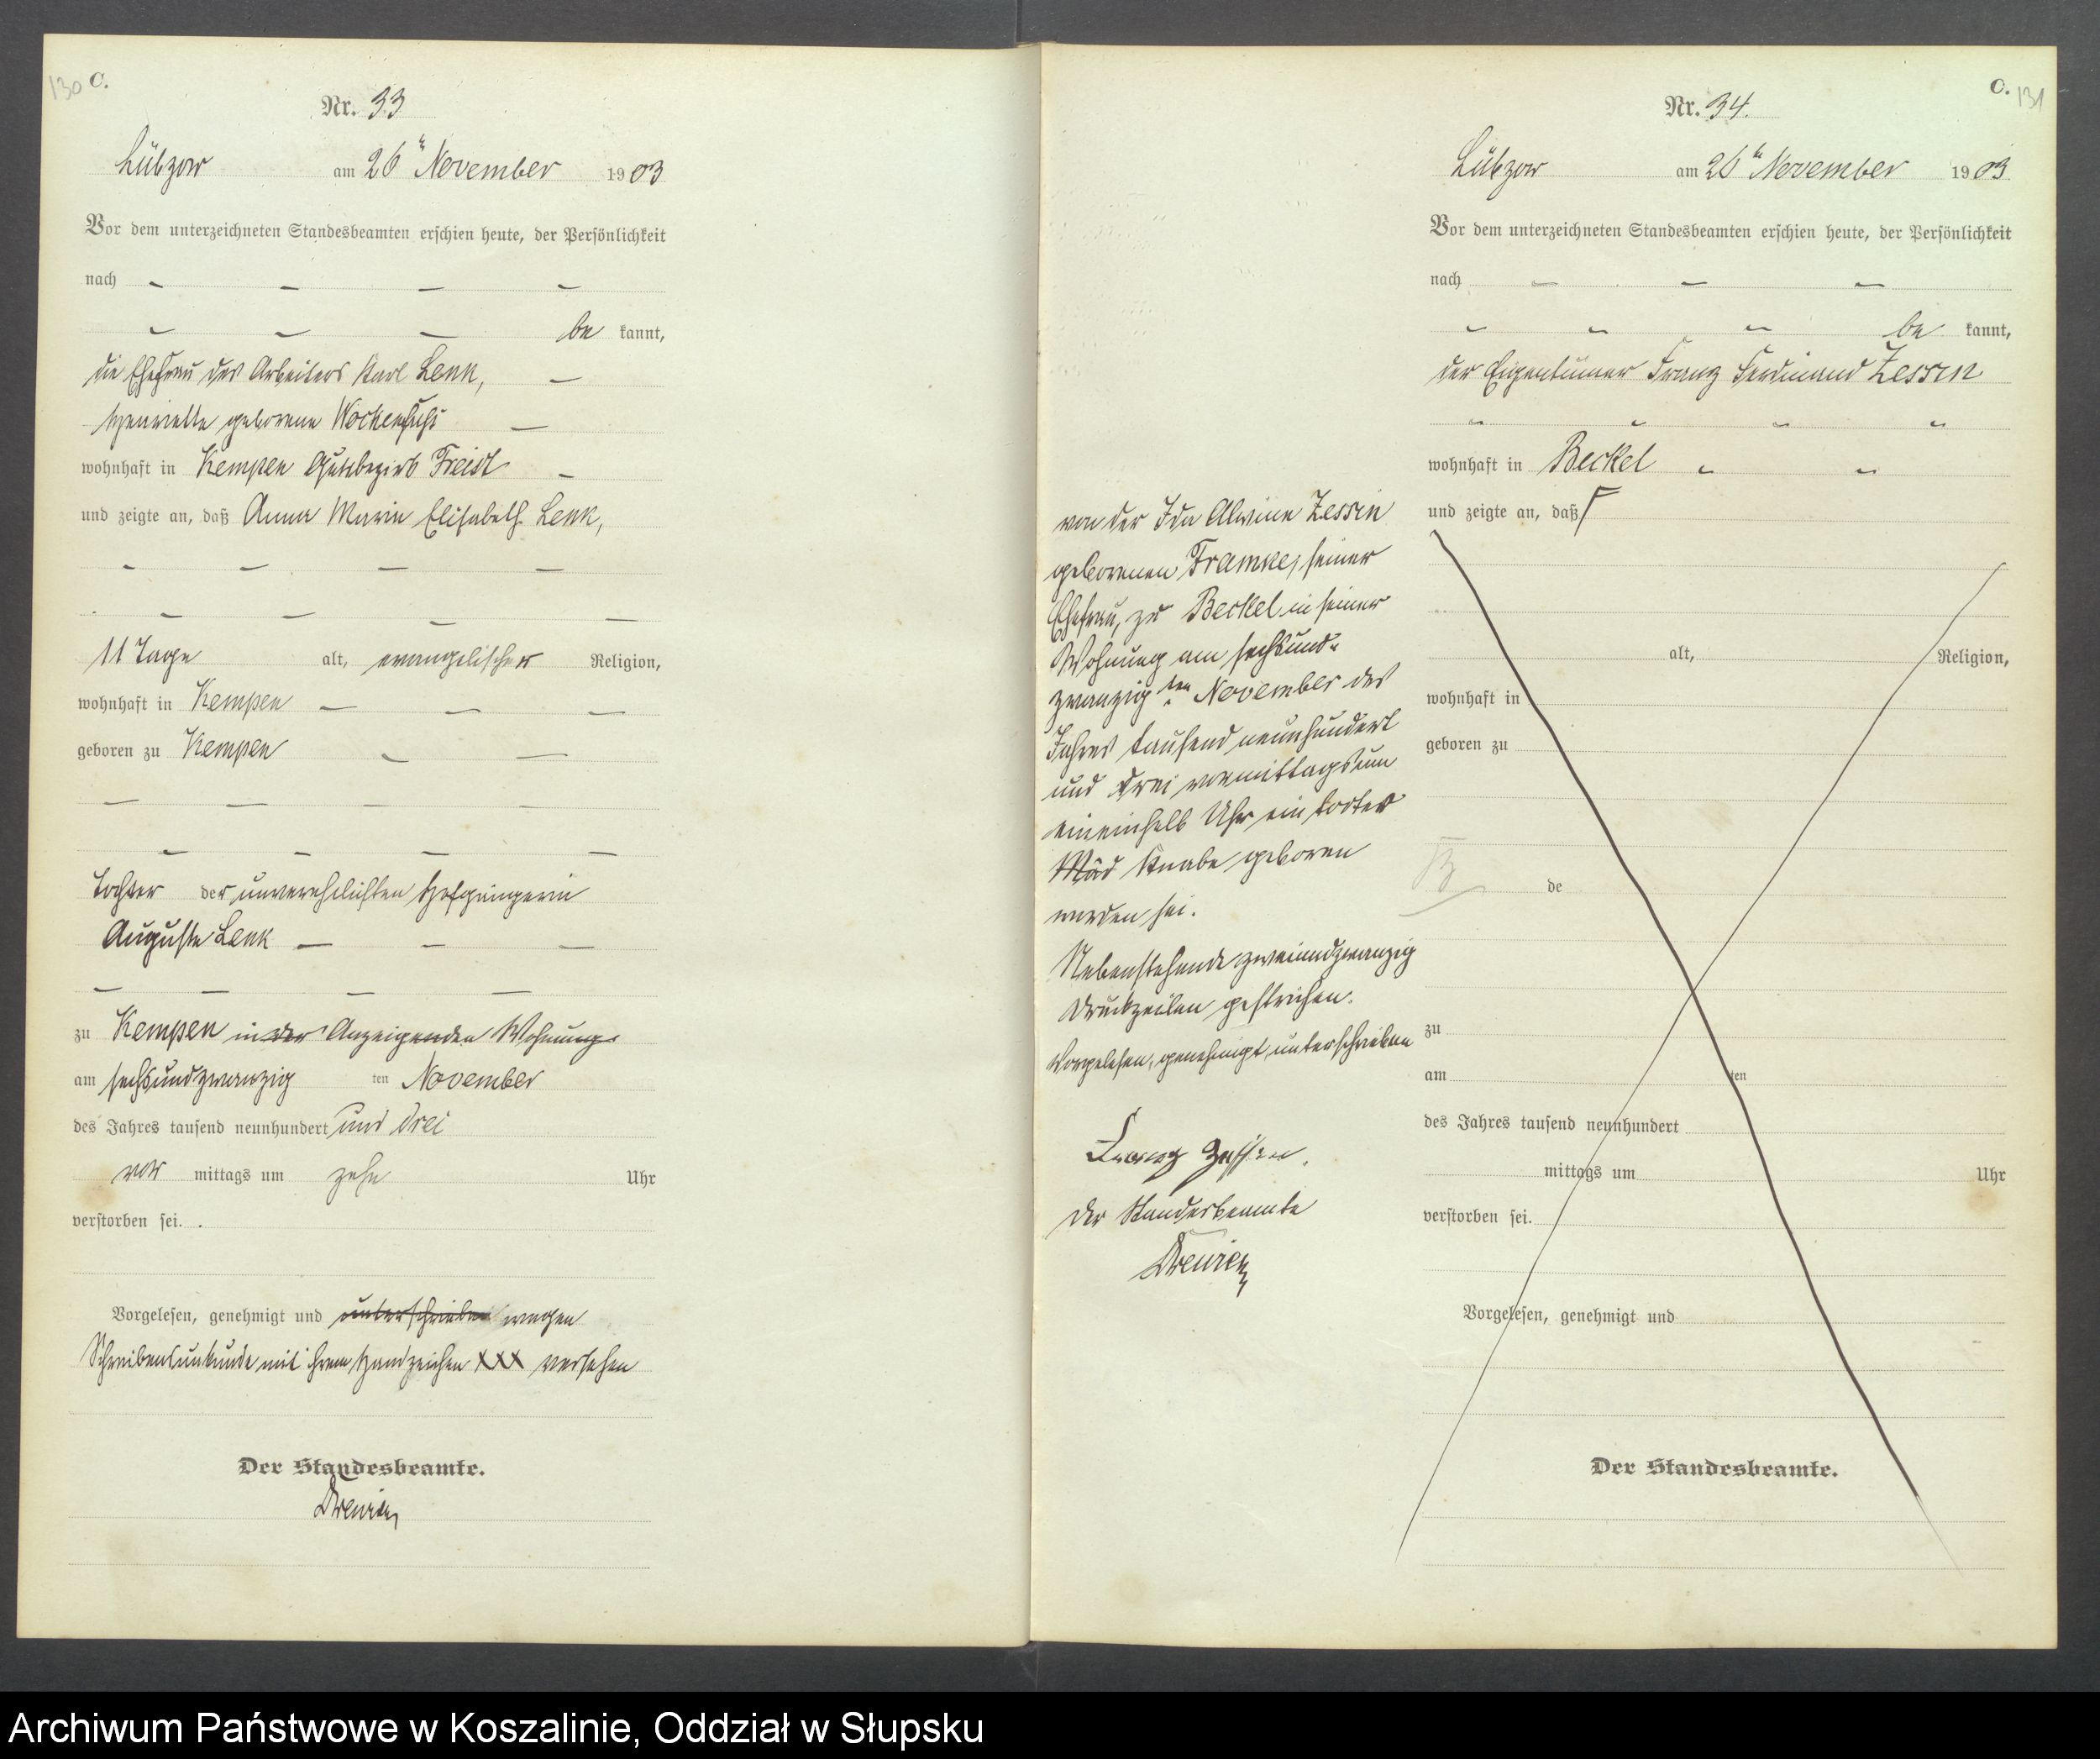 130 C.
Nr. 33
Lübzow am 26ten November 1903
Vor dem unterzeichneten Standesbeamten erschien heute, der Persönlichkeit
nach - - - -
- - - be kannt,
die Ehefrau des Arbeiters Karl Lenk, -
Henriette geborene Wockenfuß -
wohnhaft in Kempen Gutsbezirk Freist -
und zeigte an, daß Anna Marie Elisabeth Lenk,
- - - -
- - - -
11 Tage alt, evangelischer Religion,
wohnhaft in Kempen - - -
geboren zu Kempen - -
- - - -
- - - -
Tochter der unverehelichten Hofgängerin
Auguste Lenk - - -
- - - -
zu Kempen in der Anzeigenden Wohnung
am sechsundzwanzig ten November
des Jahres tausend neunhundert und drei
vor mittags um zehn Uhr
verstorben sei.
Vorgelesen, genehmigt und unterschrieben wegen
Schreibensunkunde mit ihrem Handzeichen XXX versehen
Der Standesbeamte.
C. 131
Nr. 34.
Lübzow am 26ten November 1903
Vor dem unterzeichneten Standesbeamten erschien heute, der Persönlichkeit
nach - - -
- - - be kannt,
der Eigentümer Franz Ferdinand Zessin
- - - -
wohnhaft in Beckel - -
und zeigte an, daß
von der Ida Alwine Zessin
geborenen Framke, seiner
Ehefrau, zu Beckel in seiner
Wohnung am sechsund-
zwanzigten November des
Jahres tausend neunhundert
und drei vormittags um
eineinhalb Uhr ein todter
Mäd Knabe geboren
worden sei.
Nebenstehende zweiundzwanzig
Druckzeilen gestrichen.
Vorgelesen, genehmigt, unterschrieben
Franz Zessin.
Der Standesbeamte
alt, Religion,
wohnhaft in
geboren zu
de
zu
am ten
des Jahres tausend neunhundert
mittags um Uhr
verstorben sei.
Vorgelesen, genehmigt und
Der Standesbeamte.
Archiwum Państwowe w Koszalinie, Oddział w Słupsku